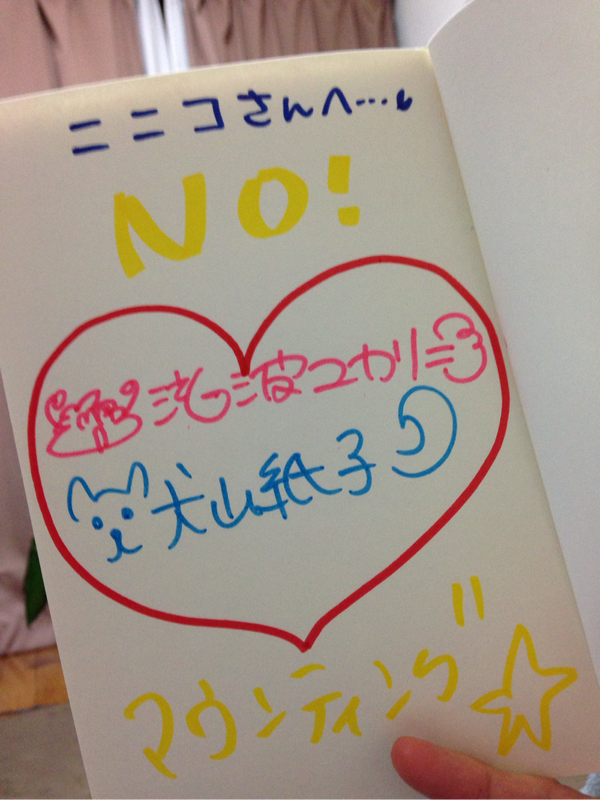 ニニコさんへ…
NO!
瀧波ユカリ
犬山紙子
マウンティング